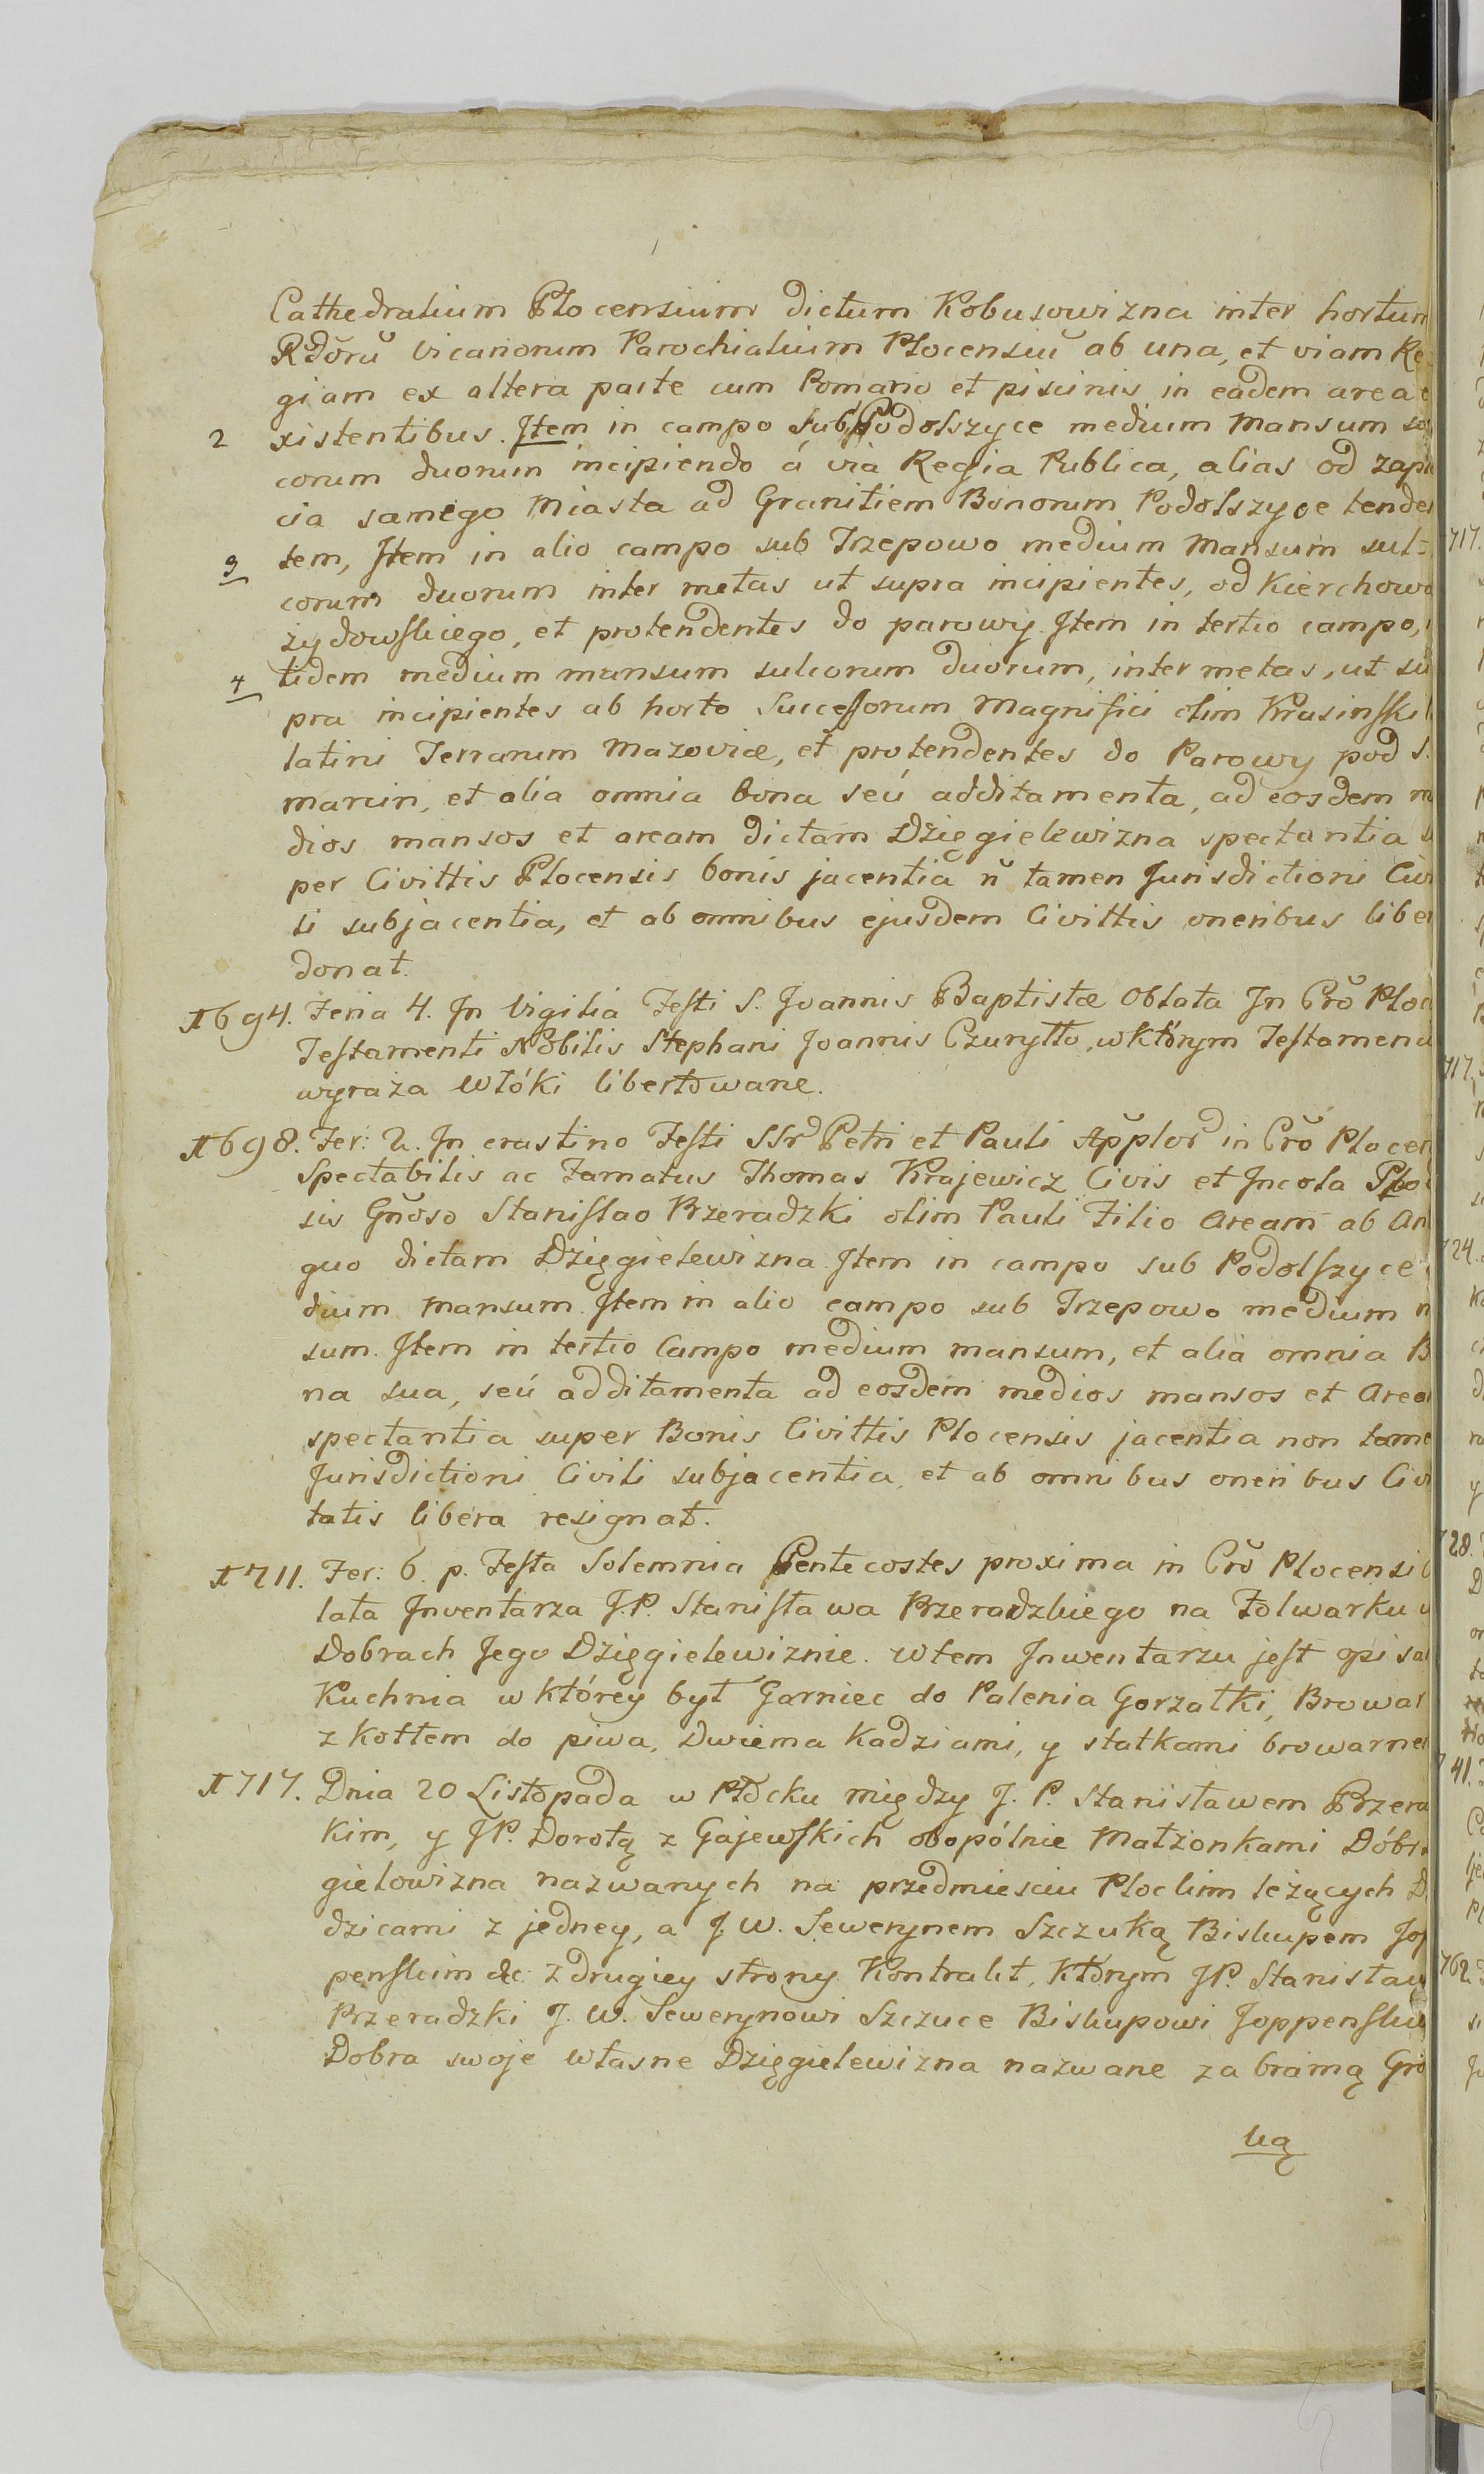 Cathedralium Plocensium dictum Kobusowizna inter hortum
Rdorū Vicariorum Parochialium Plocensiū ab una, et viam Re-
giam ex altera parte cum Pomario et piscinis in eadem area e
2 xistentibus. Item in campo sub Podolszyce medium Mansum
corum duorum incipiendo á via Regia Publica, alias od zapł
cia samego Miasta ad Granitiem Bonorum Podolszyce tenden
3 tem, Item in alio campo sub Trzepowo medium Mansum sul-
corum duorum inter metas ut supra incipientes, od Kierchowa
żydowskiego, et protendentes do parowy. Item in tertio campo,
4 tidem medium mansum sulcorum duorum, inter metas, ut su
pra incipientes ab horto Successorum Magnifici olim Krasinski
latini Terrarum Mazoviæ, et protendentes do Parowy pod S.
Marcin, et alia omnia bona seú additamenta, ad eosdem m
dios mansos et aream dictam Dzięgielewizna spectantia
per Civittis Plocensis bonis jacentia n̆ tamen Jurisdictioni Civi
li subjacentia, et ab omnibus ejusdem Civittis oneribus liber
donat.
1694. Feria 4. In Vigilia Festi S. Joannis Baptistæ Oblata In Crŏ Ploc
Testamenti Nobilis Stephani Joannis Czuryłło, w którym Testamenci
wyraża Włóki libertowane.
1698. Fer: 2. In crastino Festi SSr Petri et Pauli Applor in Crŏ Plocen
Spectabilis ac Famatus Thomas Krajewicz Civis et Incola Ploc
sis Gnŏso Stanislao Przeradzki olim Pauli Filio Aream ab An
quo dictam Dzięgielewizna. Item in campo sub Podolszyce
dium Mansum. Item in alio campo sub Trzepowo medium m
sum. Item in tertio Campo medium mansum, et alia omnia B
na sua, seú additamenta ad eosdem medios mansos et Area
spectantia super Bonis Civittis Plocensis jacentia non tame
Jurisdictioni Civili subjacentia, et ab omnibus oneribus Civi
tatis libera resignat.
1711. Fer: 6. p. Festa Solemnia Pentecostes proxima in Crŏ Plocensi O
lata Inventarza J.P. Stanisława Przeradzkiego na Folwarku y
Dobrach Jego Dzięgielewiznie. W tem Inwentarzu jest opisa
Kuchnia w którey był Garniec do Palenia Gorzałki, Browar
z kotłem do piwa, Dwiema Kadziami, y statkami browarne
1717. Dnia 20 Listopada w Płocku między J. P. Stanisławem Przera
kim, y JP. Dorotą z Gajewskich obopólnie Małżonkami Dóbr
gielowizna nazwanych na przedmiesciu Plockim leżących D
dzicami z jedney, a J. W. Sewerynem Szczuką Biskupem Jop
penskim &c: z drugiey strony Kontrakt, którym JP. Stanisław
Przeradzki J. W. Sewerynowi Szczuce Biskupowi Joppensku
Dobra swoje własne Dzięgielewizna nazwane za bramą Gro
ką